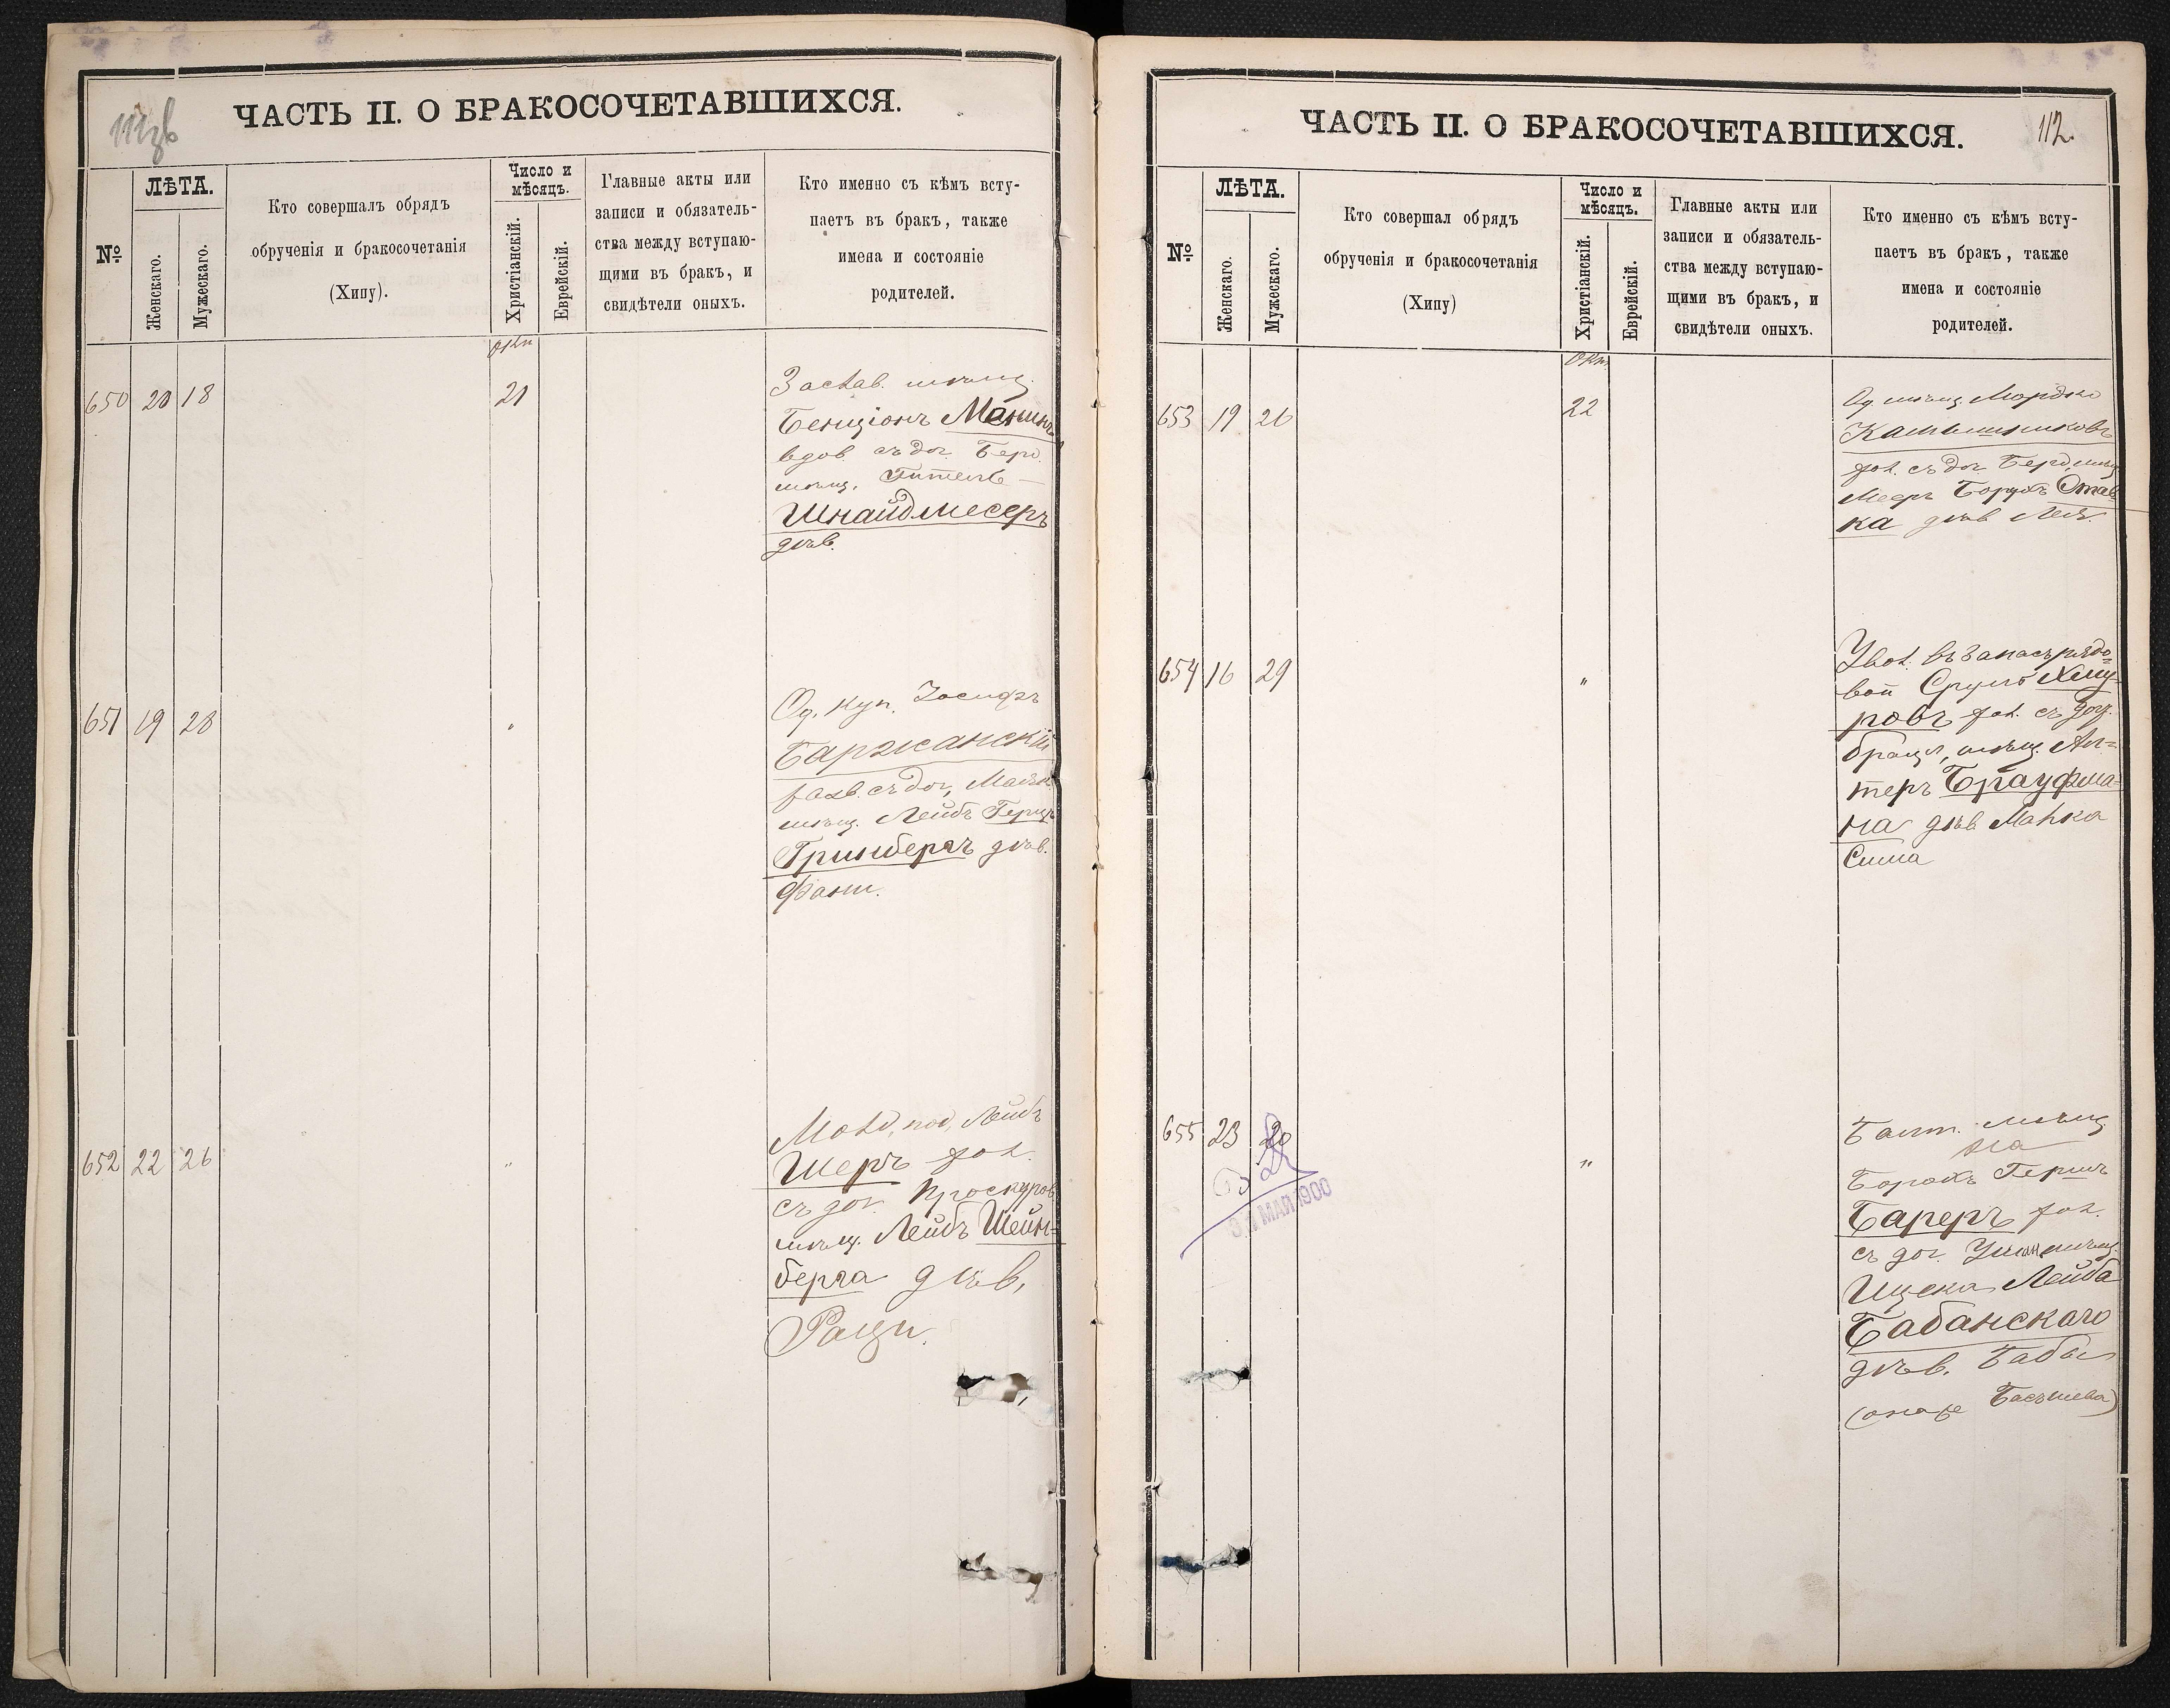 ЧАСТЬ II. О БРАКОСОЧЕТАВШИХСЯ.
№
ЛѢТА.
Женскаго.
Мужескаго.
Кто совершалъ обрядъ
обрученія и бракосочетанія
(Хипу).
Число и
мѣсяцъ.
Христіанскій.
Еврейскій.
Главные акты или
записи и обязатель-
ства между вступаю-
щими въ бракъ, и
свидѣтели оныхъ.
Кто именно съ кѣмъ всту-
паетъ въ бракъ, также
имена и состояніе
родителей.
Окт
650 20 18
21
Заслав. мѣщ.
Бенціонъ Манинъ
вдов. съ доч. Берд.
мѣщ. Гитель
Шнайдмесеръ
дѣв.
651 19 28
"
Од. куп. Іосифъ
Баржанскій
разв. съ доч,
мѣщ. Лейбъ Герцъ
Гринбергъ дѣв.
Фани.
652 22 26
"
Лейбъ
Шеръ хол.
съ доч. Проскуров
мѣщ. Лейбъ Шейн=
берга дѣв,
Рацы.
ЧАСТЬ II. О БРАКОСОЧЕТАВШИХСЯ.
112.
№
ЛѢТА.
Женскаго.
Мужескаго.
Кто совершал обрядъ
обрученія и бракосочетанія
(Хипу)
Число и
мѣсяцъ.
Христіанскій.
Еврейскій.
Главные акты или
записи и обязатель-
ства между вступаю-
щими въ бракъ, и
свидѣтели оныхъ.
Кто именно съ кѣмъ всту-
паетъ въ бракъ, также
имена и состояніе
родителей.
Окт.
653 19 26
22
Од. мѣщ. Мордко
Камышниковъ
хол. съ доч Берд. мѣщ
Мееръ Став
ка дѣв Лея.
654 16 29
"
Увол. въ запасъ рядо=
вой Сруль Хму=
ровъ хол. съ доч.
брацл, мѣщ. Ал=
теръ Брауфма=
на дѣв Манка
Сима
655 23 20
"
Балт. мѣщ
Борохъ Гершъ
Bareръ хол.
съ доч. Уман мѣщ.
Ицека Лейба
Бабанскаго
дѣв. Баба
(она же Басъшева)
МАЯ 1900